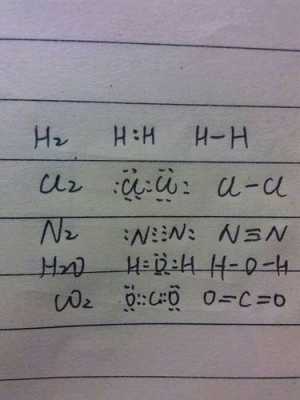 H₂ H:H H-H
Cl₂ :C̤̈l:C̤̈l: Cl-Cl
N₂ :N⋮⋮N: N≡N
H₂O H:Ö̤:H H-O-H
CO₂ Ö̤::C::Ö̤ O=C=O